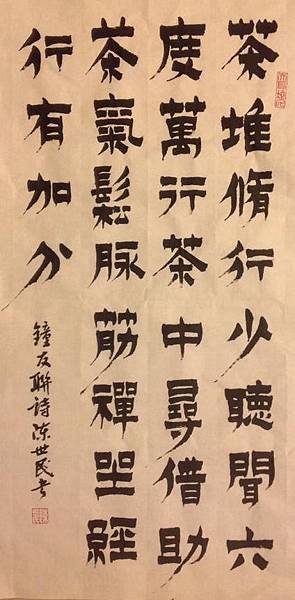 茶堆脩行少聽聞六
度萬行茶中尋借助
茶氣鬆脉筋禪坐經
行有加分
鐘友聯詩陳世民書